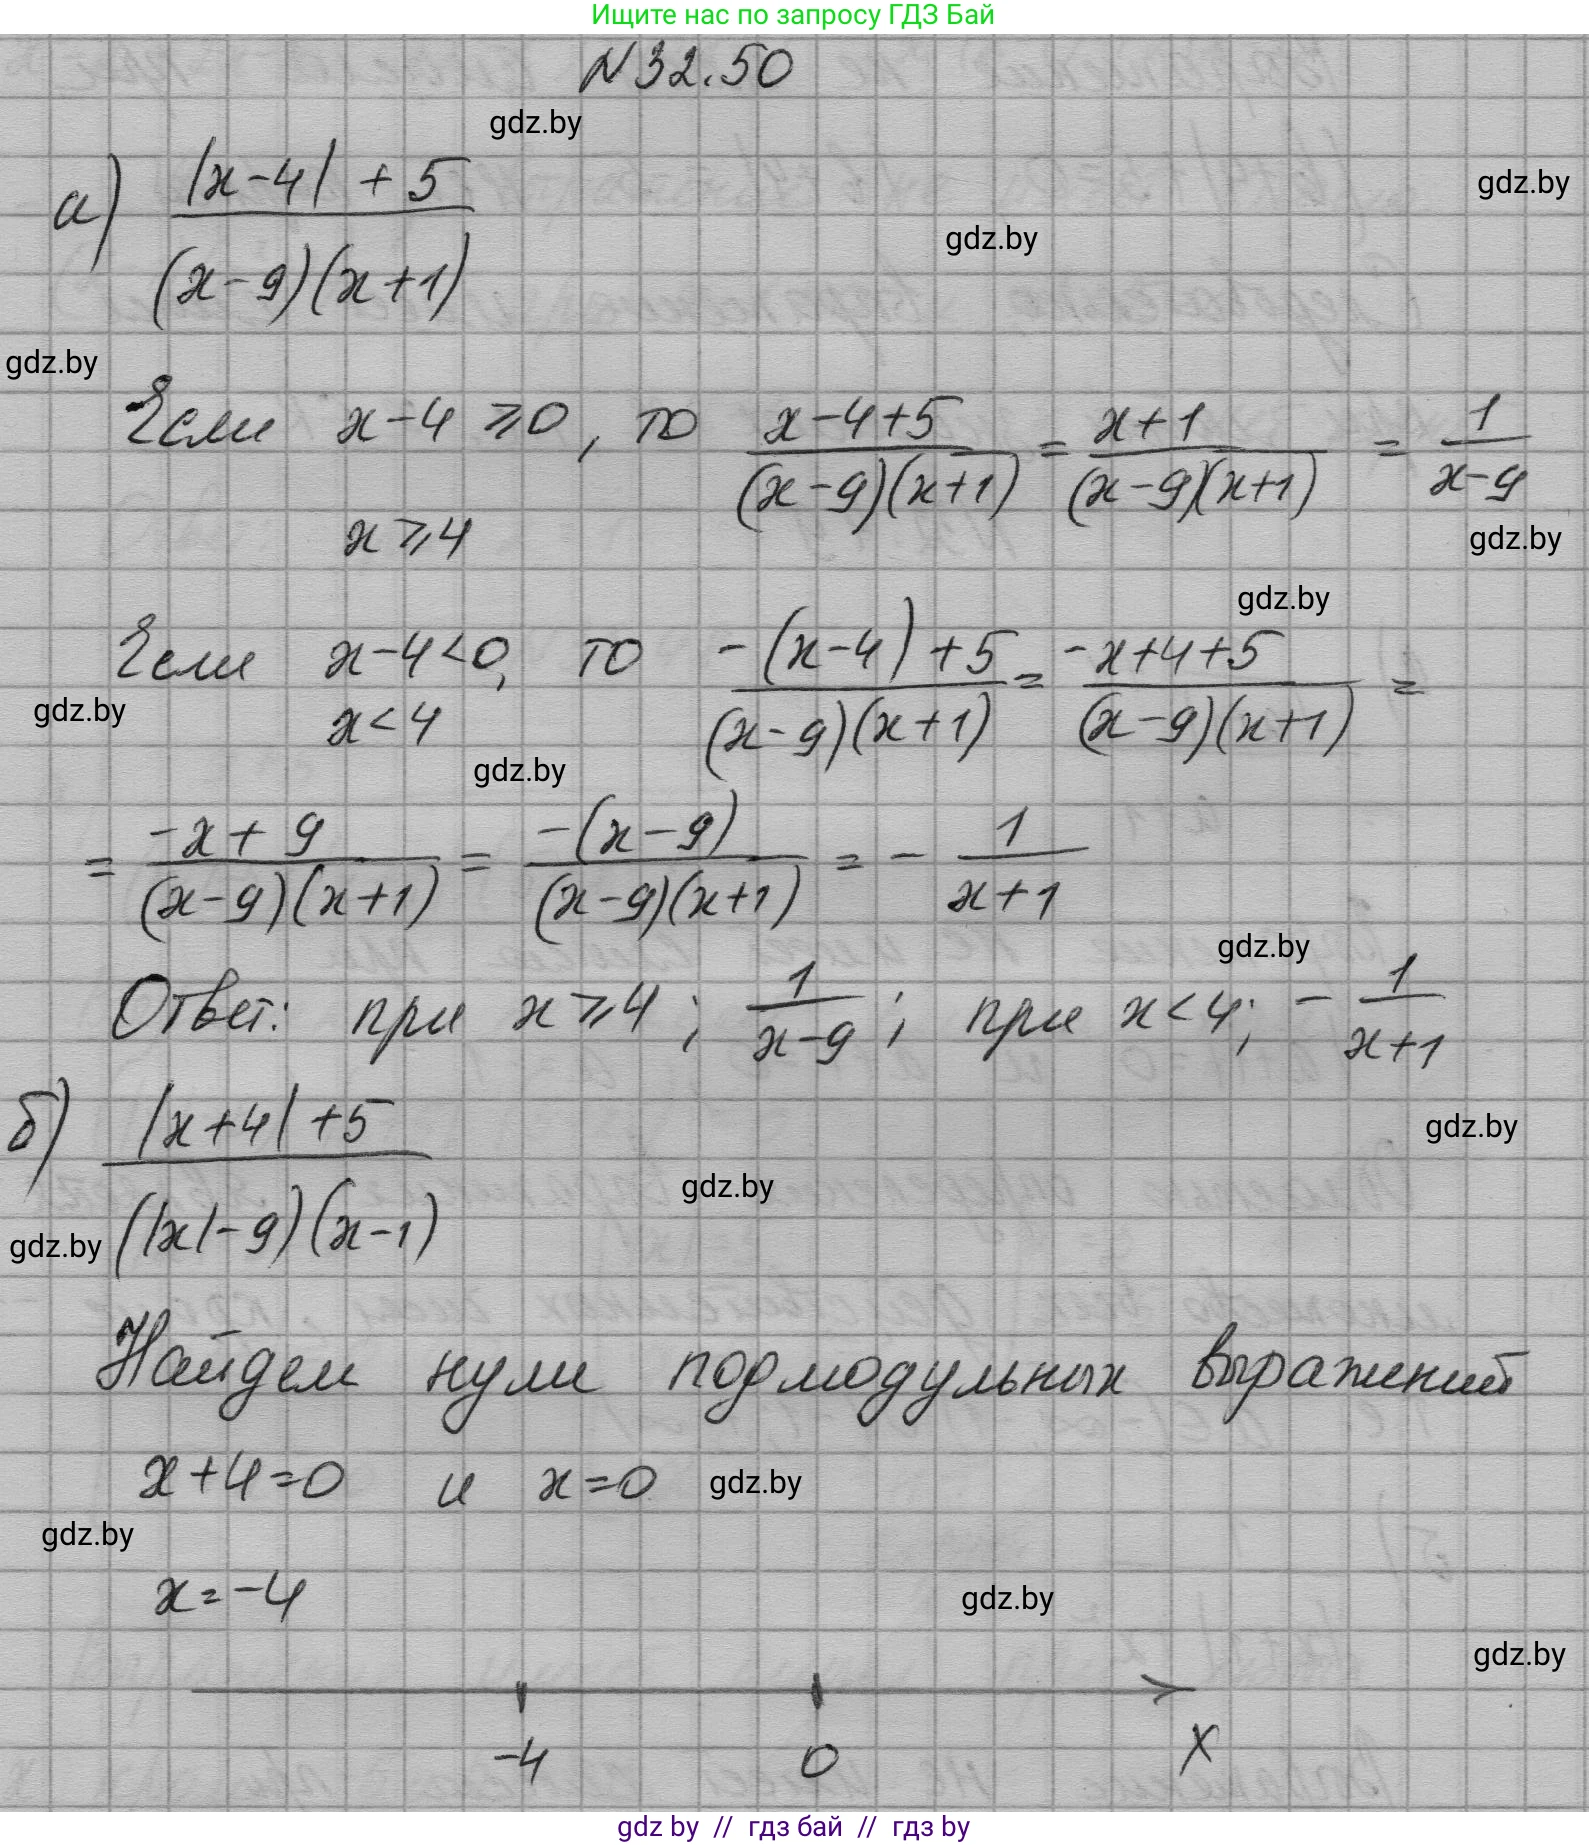 Ищите нас по запросу ГДЗ Бай
N32.50
gdz.by
а) (|x-4| + 5)/((x-9)(x+1))
gdz.by
gdz.by
gdz.by
Если x-4 ⩾0, то (x-4+5)/((x-9)(x+1)) = (x+1)/((x-9)(x+1)) = 1/(x-9)
x⩾4
gdz.by
gdz.by
Если x-4<0, то (-(x-4)+5)/((x-9)(x+1)) = (-x+4+5)/((x-9)(x+1)) =
gdz.by
x<4
gdz.by
= (-x+9)/((x-9)(x+1)) = (-(x-9))/((x-9)(x+1)) = - 1/(x+1)
gdz.by
Ответ: при x⩾4; 1/(x-9); при x<4; - 1/(x+1)
б) (|x+4|+5)/((|x|-9)(x-1))
gdz.by
gdz.by
gdz.by
Найдем нули подмодульных выражений
x+4=0 и x=0
gdz.by
gdz.by
x=-4
gdz.by
gdz.by
-4 0 X
gdz by // гдз бай // гдз by